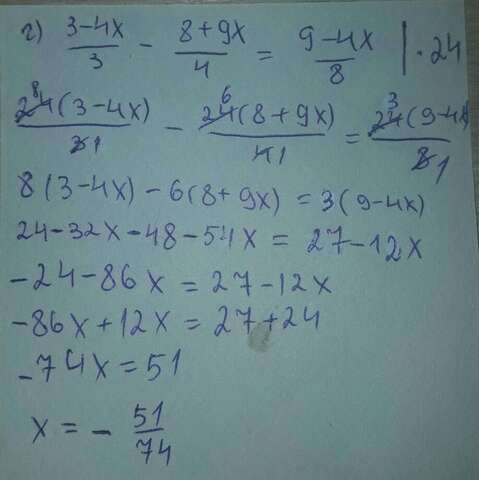 г) (3-4x)/3 - (8+9x)/4 = (9-4x)/8 | · 24
24 8 (3-4x)/3 1 - 24 6 (8+9x)/4 1 = 24 3 (9-4x)/8 1
8(3-4x)-6(8+9x)=3(9-4x)
24-32x-48-54x=27-12x
-24-86x=27-12x
-86x+12x=27+24
-74x=51
x=-51/74